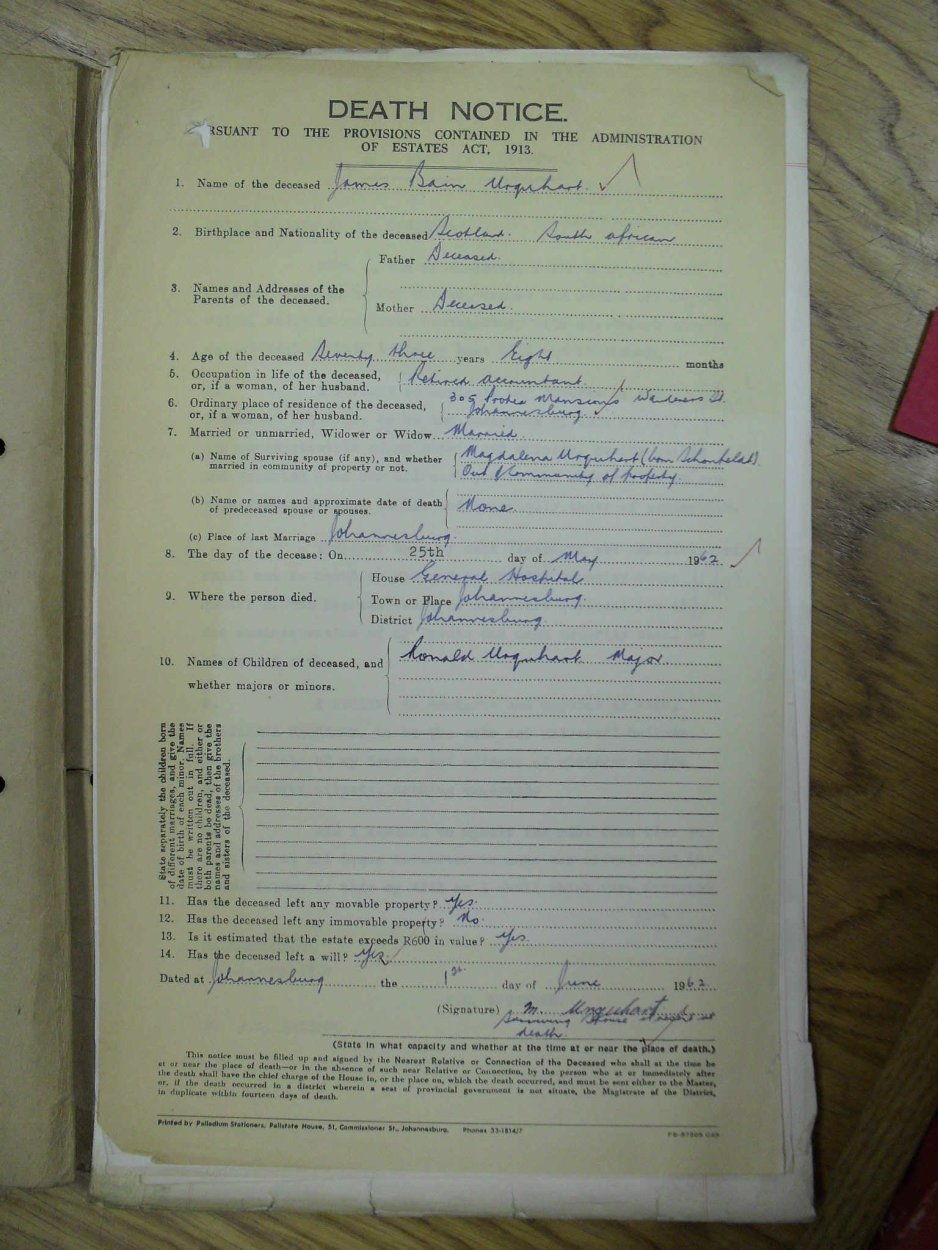 DEATH NOTICE.
RSUANT TO THE PROVISIONS CONTAINED IN THE ADMINISTRATION
OF ESTATES ACT, 1913.
1. Name of the deceased James Bain Urquhart.
2. Birthplace and Nationality of the deceased Scotland. South african
Father Deceased.
3. Names and Addresses of the
Parents of the deceased.
Mother Deceased.
4. Age of the deceased Seventy three years Eight months
5. Occupation in life of the deceased,
or, if a woman, of her husband. Retired accountant
6. Ordinary place of residence of the deceased, 305 Protea Mansions Wanderers St.
or, if a woman, of her husband. Johannesburg
7. Married or unmarried, Widower or Widow Married.
(a) Name of Surviving spouse (if any), and whether Magdalena Urquhart (born
married in community of property or not. Out of Community of property.
(b) Name or names and approximate date of death
of predeceased spouse or spouses. None
(c) Place of last Marriage Johannesburg.
8. The day of the decease: On 25th day of May 1962
House General Hospital
9. Where the person died. Town or Place Johannesburg.
District Johannesburg.
10. Names of Children of deceased, and Ronald Urquhart Major
whether majors or minors.
State separately the children born
of different marriages, and give the
date of birth of each minor. Names
must be written out in full. If
there are no children, and either or
both parents be dead, then give the
names and addresses of the brothers
and sisters of the deceased.
11. Has the deceased left any movable property? Yes.
12. Has the deceased left any immovable property? No.
13. Is it estimated that the estate exceeds R600 in value? Yes.
14. Has the deceased left a will? Yes.
Dated at Johannesburg the 1st day of June 1962
(Signature) M. Urquhart
Surviving Spouse at
death.
(State in what capacity and whether at the time at or near the place of death.)
This notice must be filled up and signed by the Nearest Relative or Connection of the Deceased who shall at the time be
at or near the place of death—or in the absence of such near Relative or Connection, by the person who at or immediately after
the death shall have the chief charge of the House in, or the place on, which the death occurred, and must be sent either to the Master,
or, if the death occurred in a district wherein a seat of provincial government is not situate, the Magistrate of the District,
in duplicate within fourteen days of death.
Printed by Palladium Stationers, Pallstate House, 51, Commissioner St., Johannesburg. Phones 33-1814/7